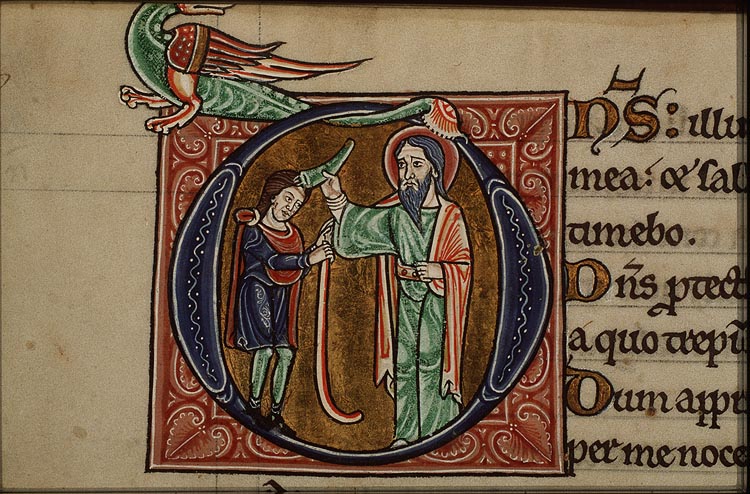 DN̄S: illu
mea: & sal
timebo.
Dn̄s ꝓtect
a quo trepi
Dum appr
per me noce